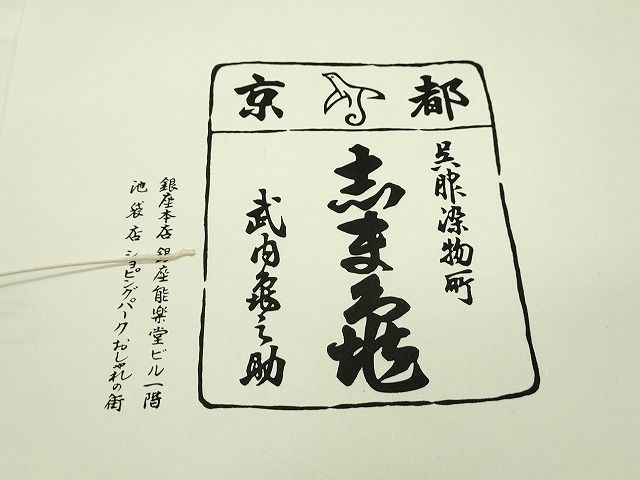 都 京
呉服染物所
志ま亀
武内亀之助
銀座本店 銀座能楽堂ビル一階
池袋店 ショッピングパークおしゃれの街